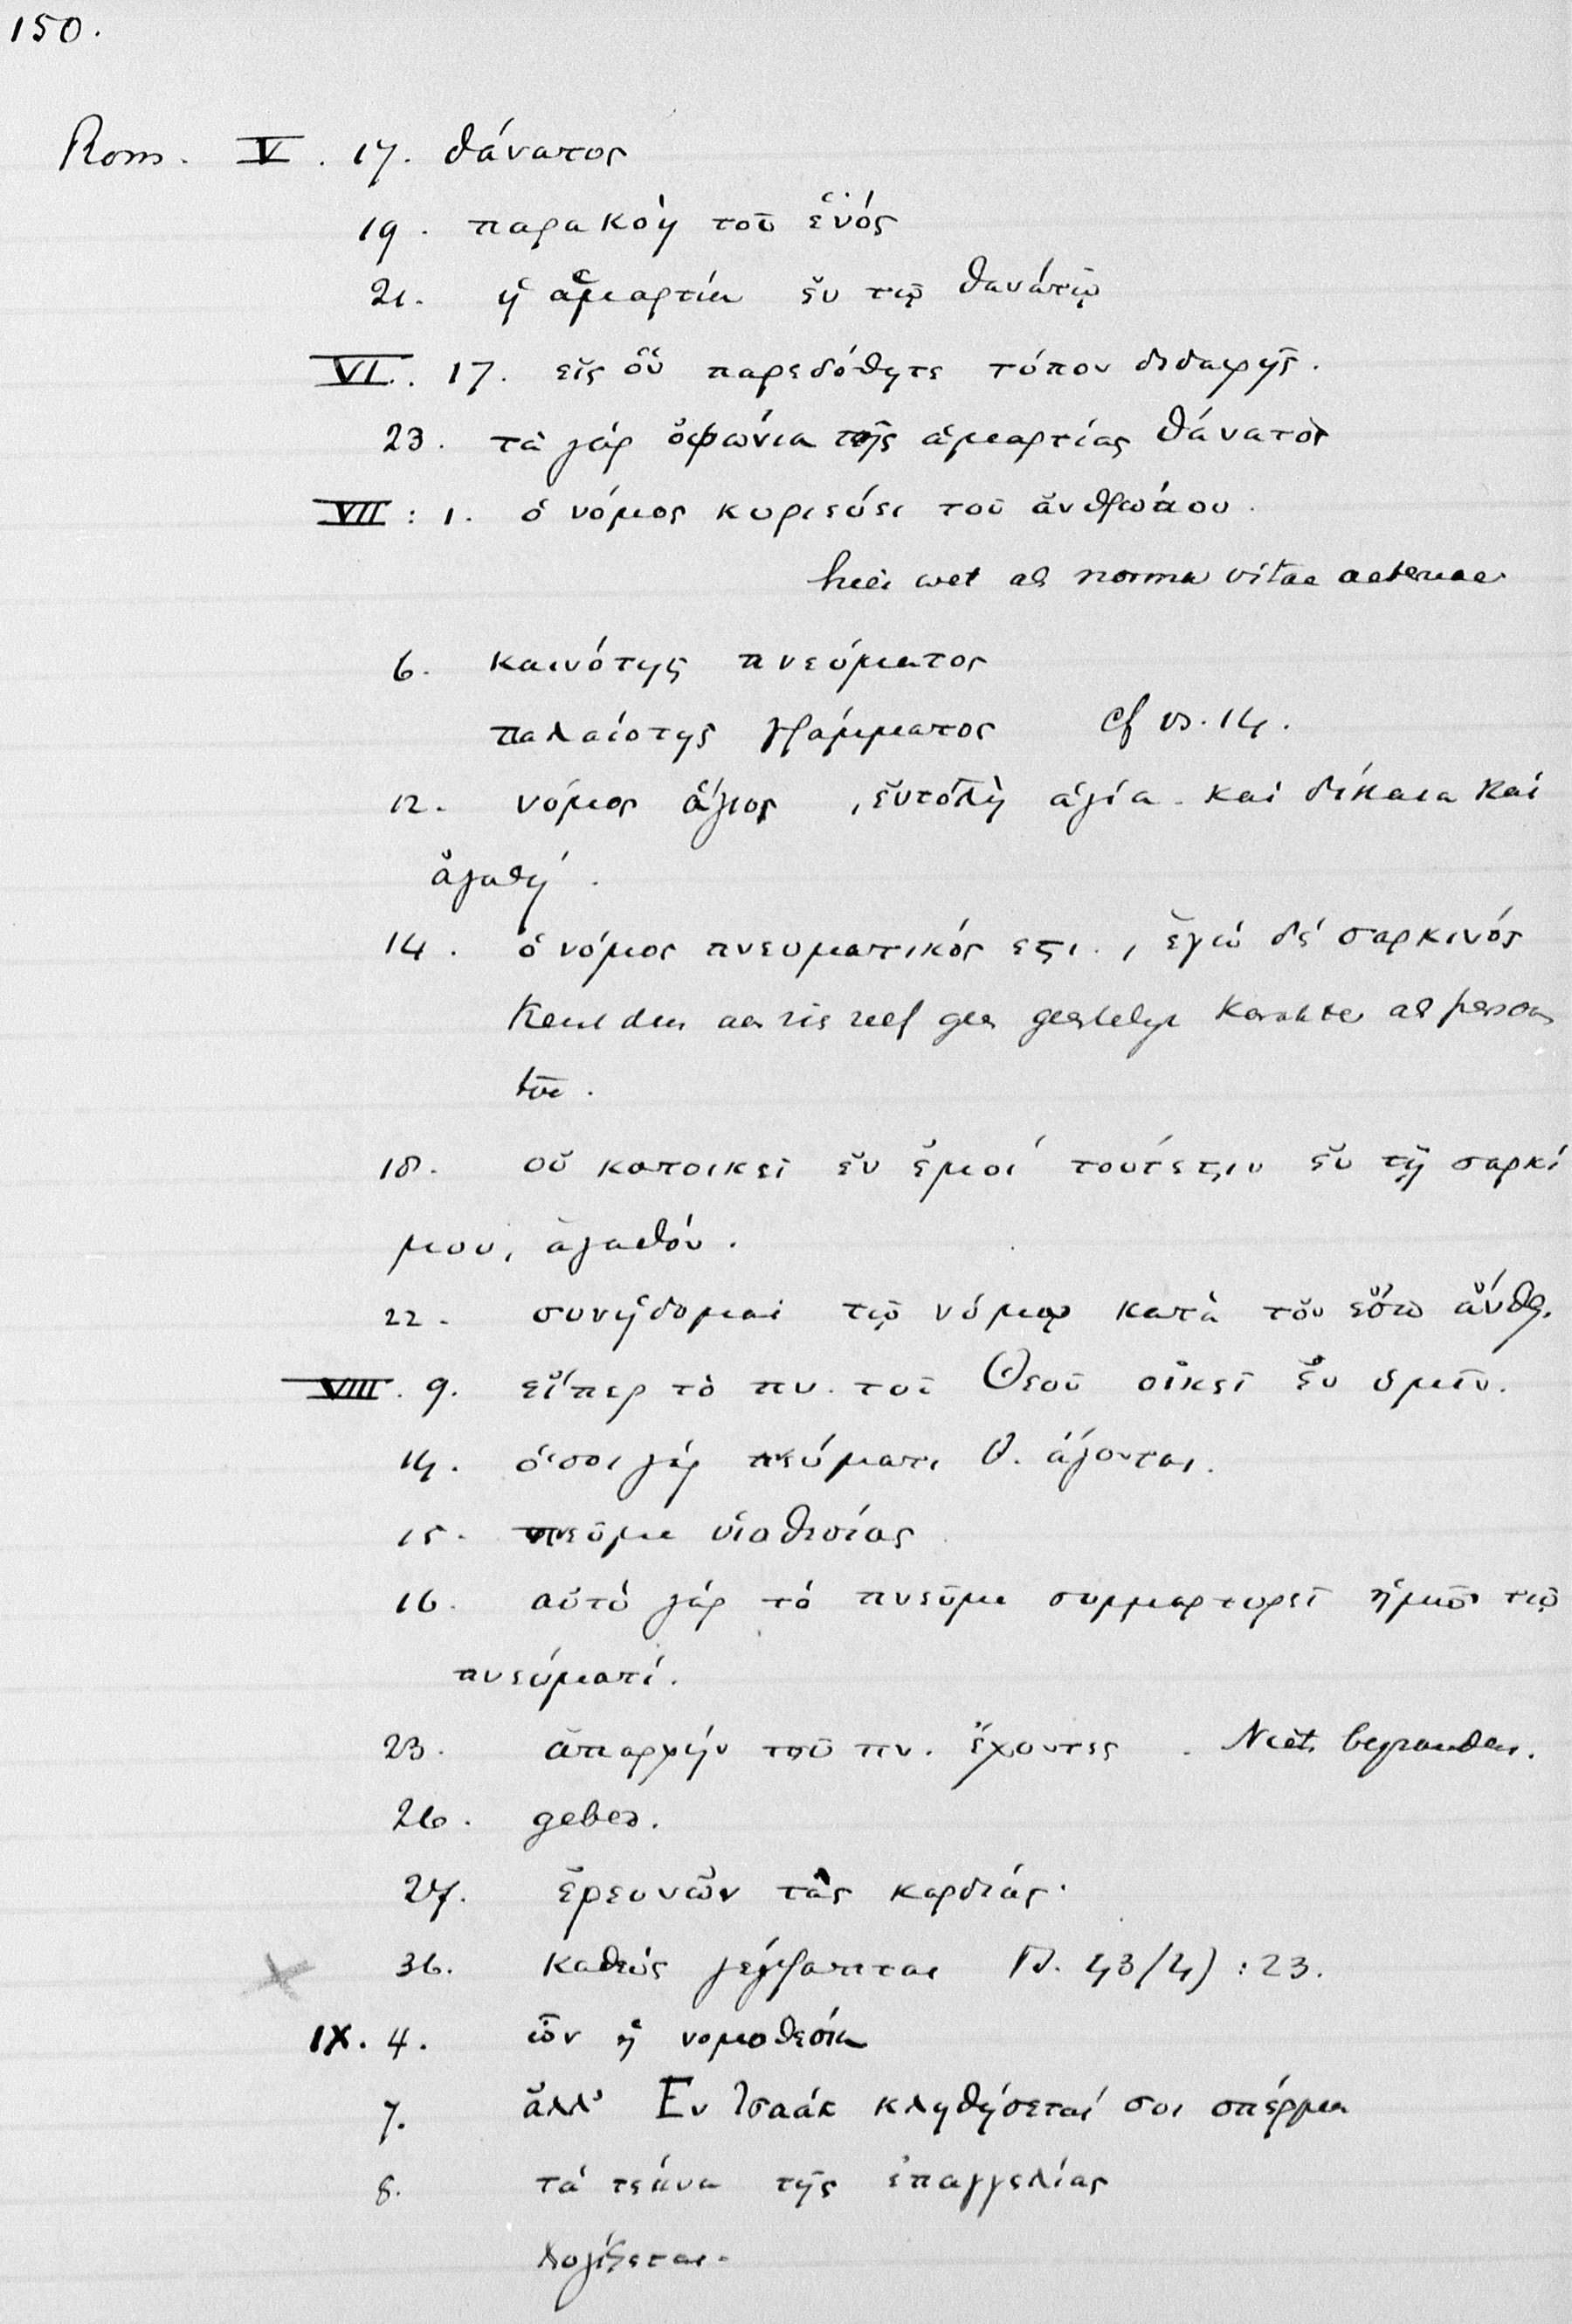 150.
Rom. V. 17. θάνατος
19. παρακοὴ τοῦ ἑνός
21. ἡ ἁμαρτία ἐν τῷ θανάτῳ
VI. 17. εἰς ὃν παρεδόθητε τύπον διδαχῆς.
23. τὰ γὰρ ὀψώνια τῆς ἁμαρτίας θάνατος
VII: 1. ὁ νόμος κυριεύει τοῦ ἀνθρώπου.
hier wet als norma vitae aeternae
6. καινότης πνεύματος
παλαιότης γράμματος cf vs. 14.
12. νόμος ἅγιος, ἐντολὴ ἁγία καὶ δίκαια καὶ
ἀγαθή.
14. ὁ νόμος πνευματικός εστι., ἐγώ δέ σαρκινός
Kent den aa zie zelf geen geestelijk karakter als persoon
toe.
18. οὐ κατοικεῖ ἐν ἐμοί τουτέστιν ἐν τῇ σαρκί
μου, ἀγαθόν.
22. συνήδομαι τῷ νόμῳ κατὰ τὸν ἔσω ἄνθρ.
VIII. 9. εἴπερ τὸ πν. τοῦ Θεοῦ οἰκεῖ ἐν ὑμῖν.
14. ὅσοι γάρ πνεύματι θ. ἄγονται.
15. πνεῦμα υἱοθεσίας
16. αὐτό γάρ τό πνεῦμα συμμαρτυρεῖ ἡμῶν τῷ
πνεύματί.
23. ἀπαρχήν τοῦ πν. ἔχοντες. Niet begraven.
26. gebed.
27. ἐρευνῶν τὰς καρδίας.
36. καθώς γέγραπται Ps. 43/4) : 23.
IX. 4. ὧν ἡ νομοθεσία
7. ἀλλ' Εν Ἰσαάκ κληθήσεταί σοι σπέρμα
8. τά τέκνα τῆς ἐπαγγελίας
λογίζεται.